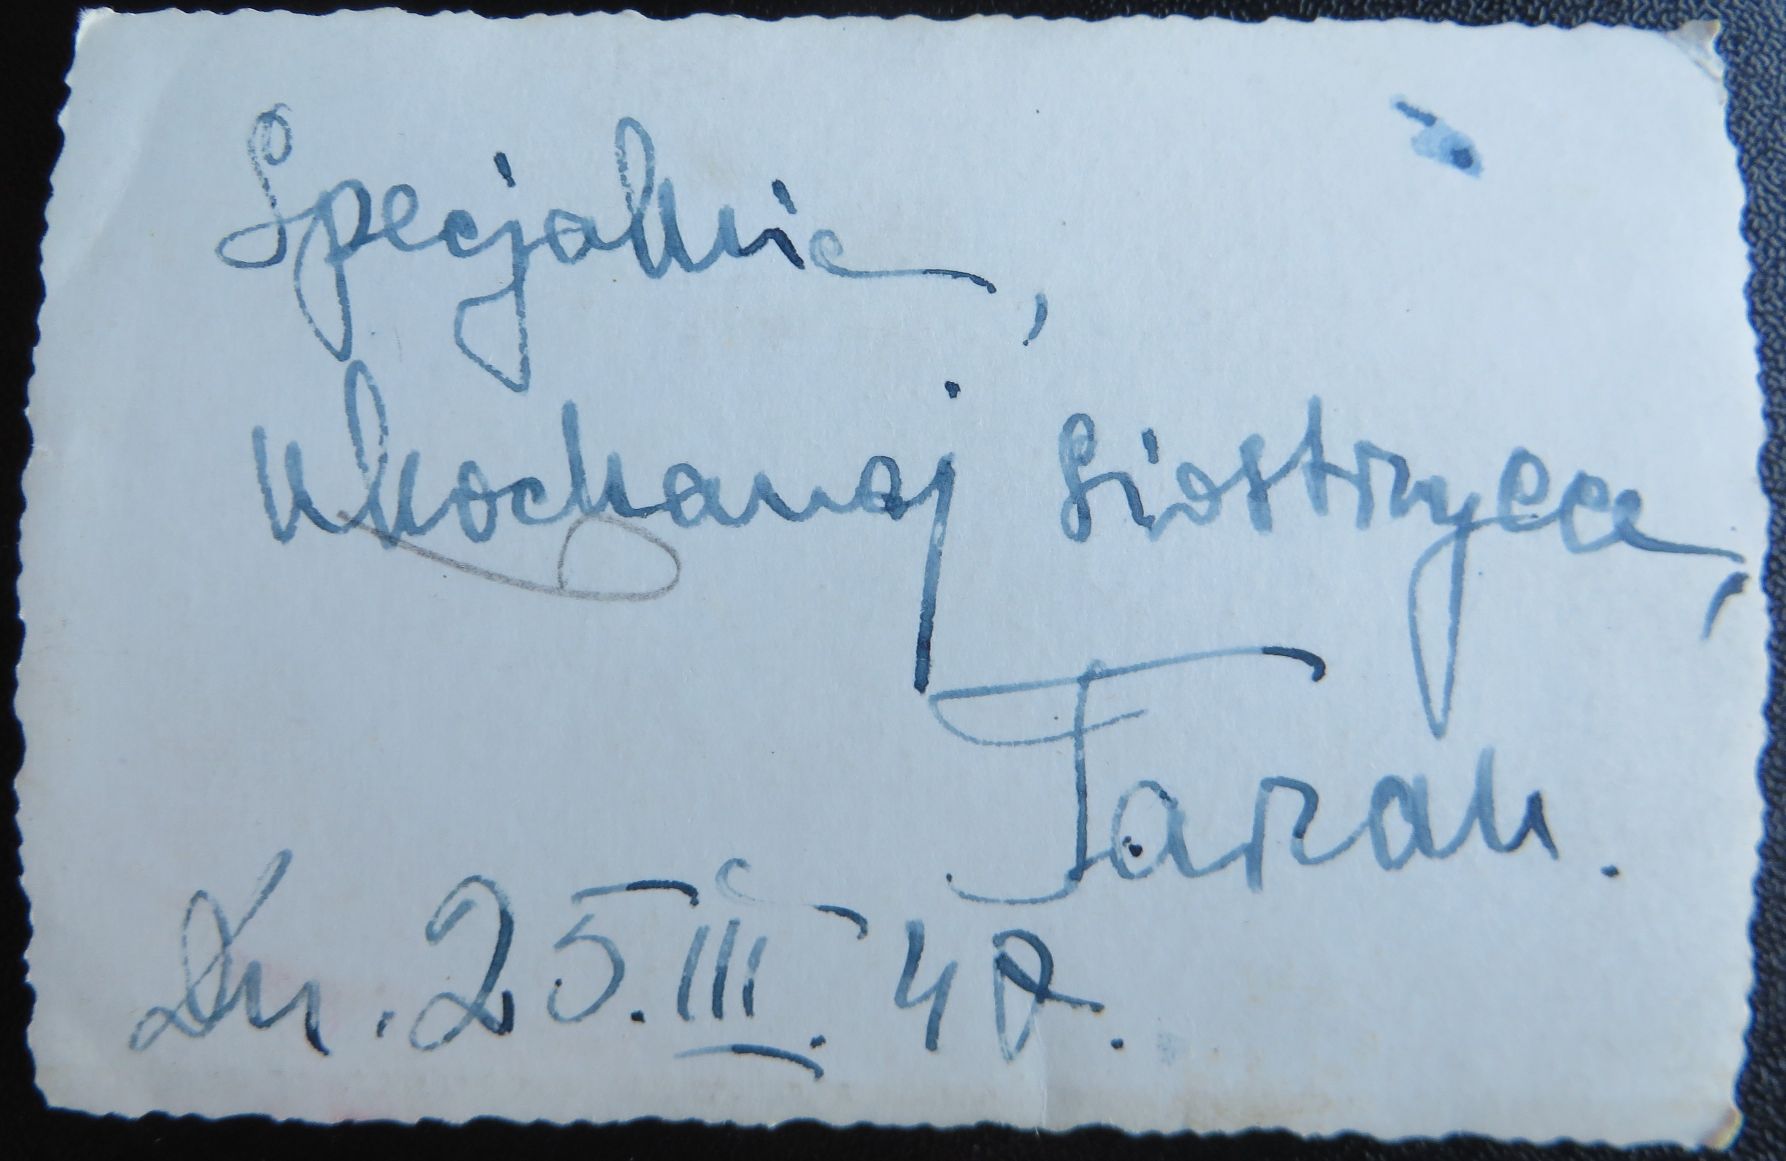 Specjalnie,
ukochanej siostrzyce,
Tarau.
Dn. 25.III.47.